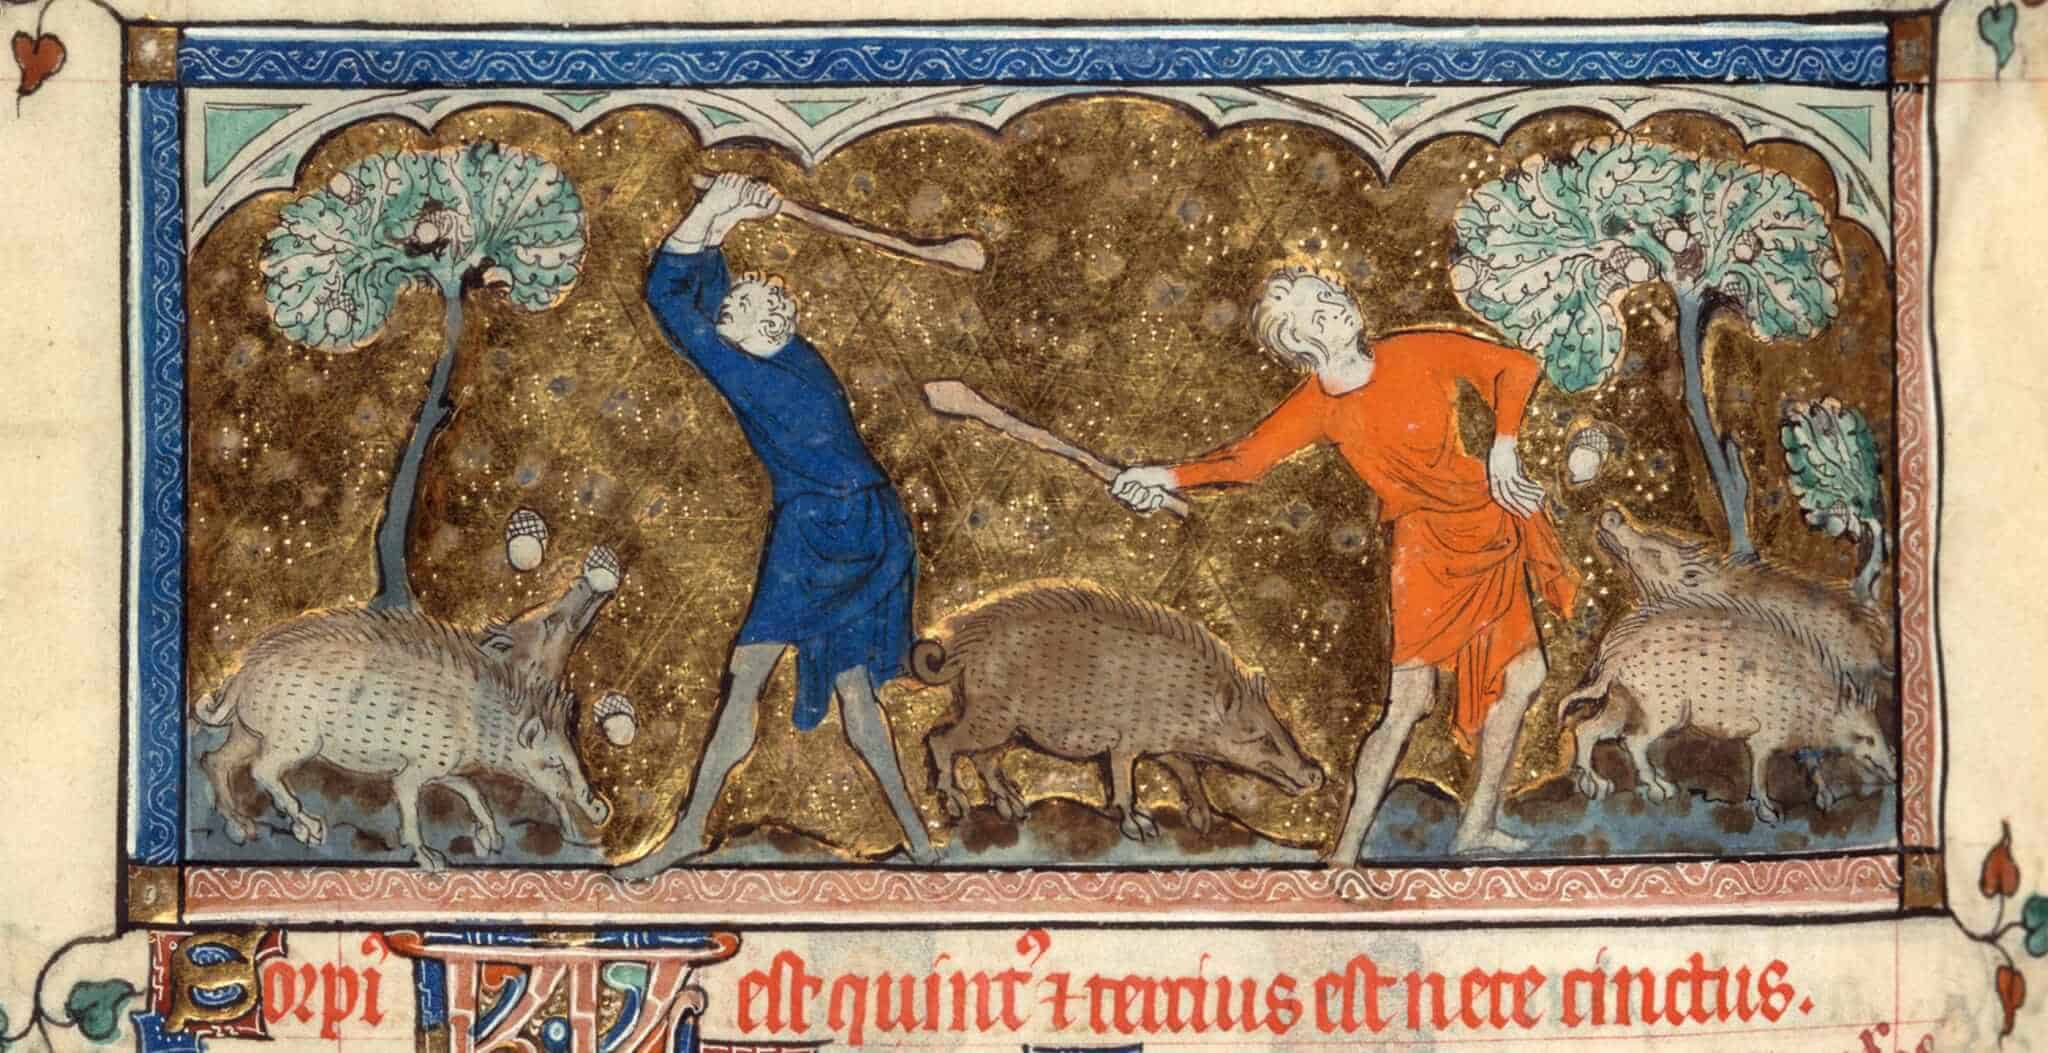 Sorpi⁹ KL est quint⁹ ⁊ tercius est nece cinctus.